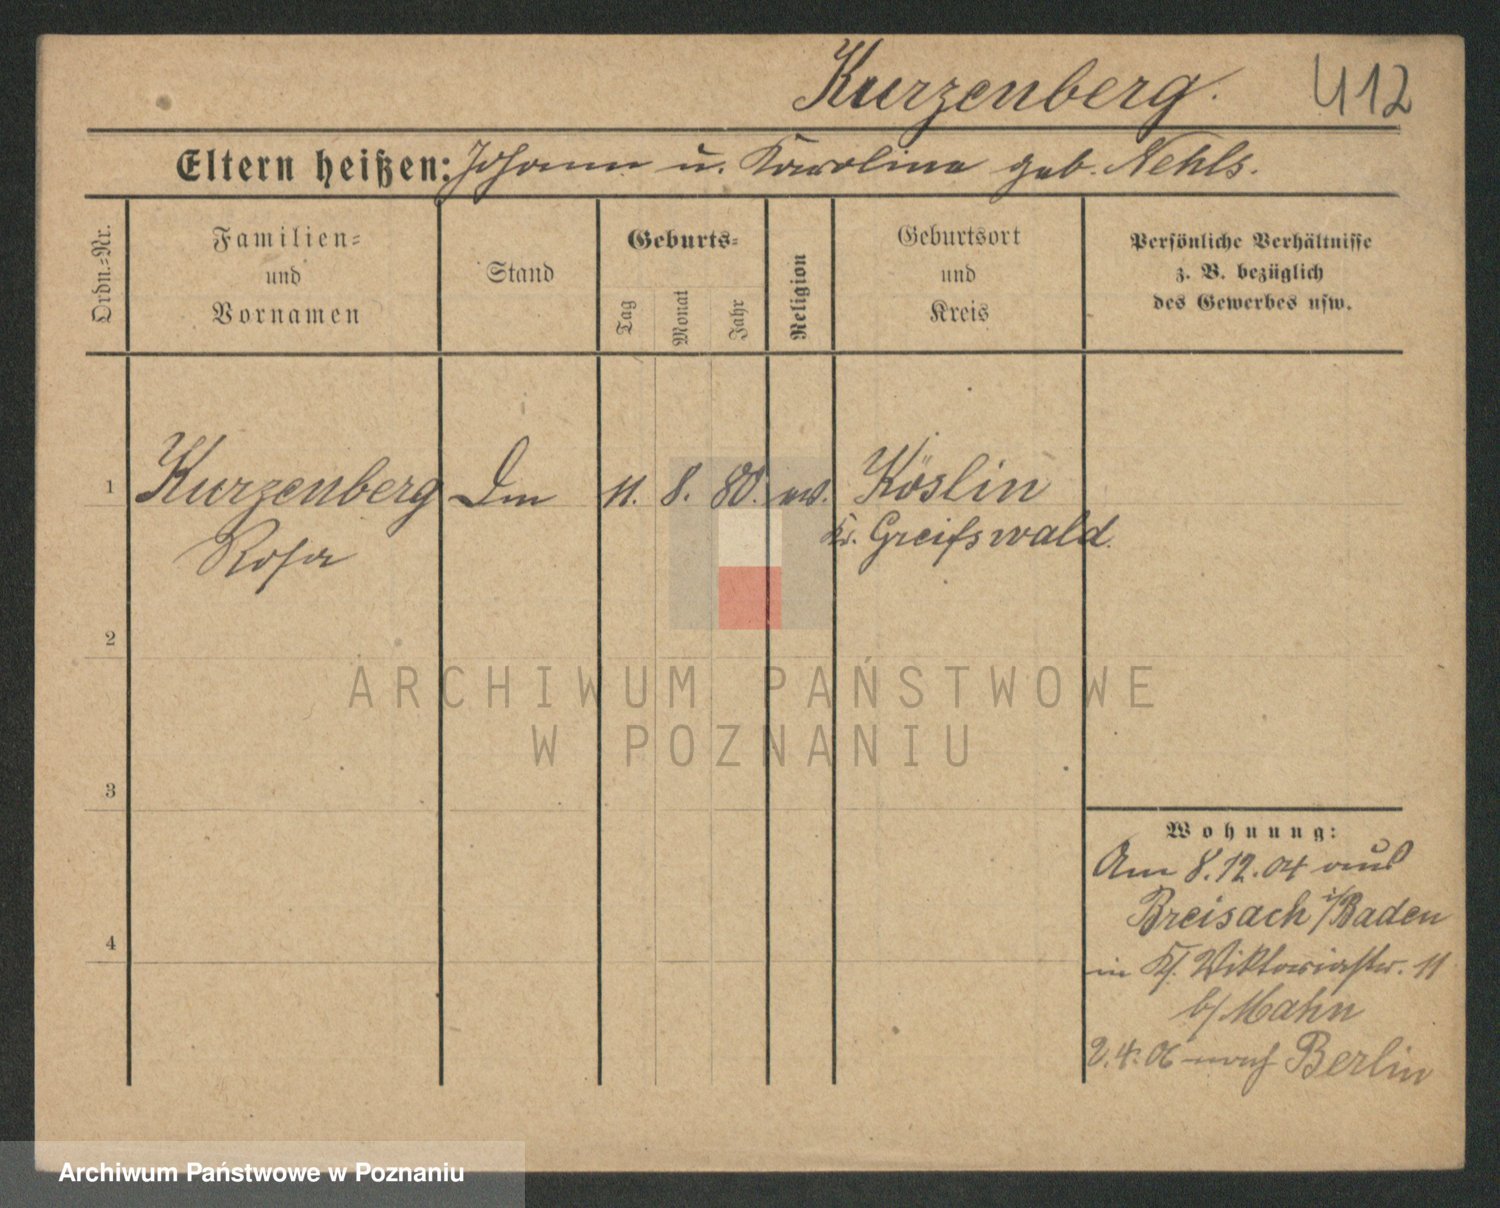 Kurzenberg. 412
Eltern heißen: Johann u. Karolina geb. Nehls.
Ordn.=Nr.
Familien=
und
Vornamen
Stand
Geburts=
Tag
Monat
Jahr
Religion
Geburtsort
und
Kreis
Persönliche Verhältnisse
z. B. bezüglich
des Gewerbes usw.
1 Kurzenberg 11. 8. 80. ev. Köslin
Rosa Kr. Greifswald.
2
3
4
Wohnung:
Am 8.12.04 aus
Breisach i/Baden
in Viktoriastr. 11
b/ Mahn
2.4.06 nach Berlin
ARCHIWUM PAŃSTWOWE
W POZNANIU
Archiwum Państwowe w Poznaniu